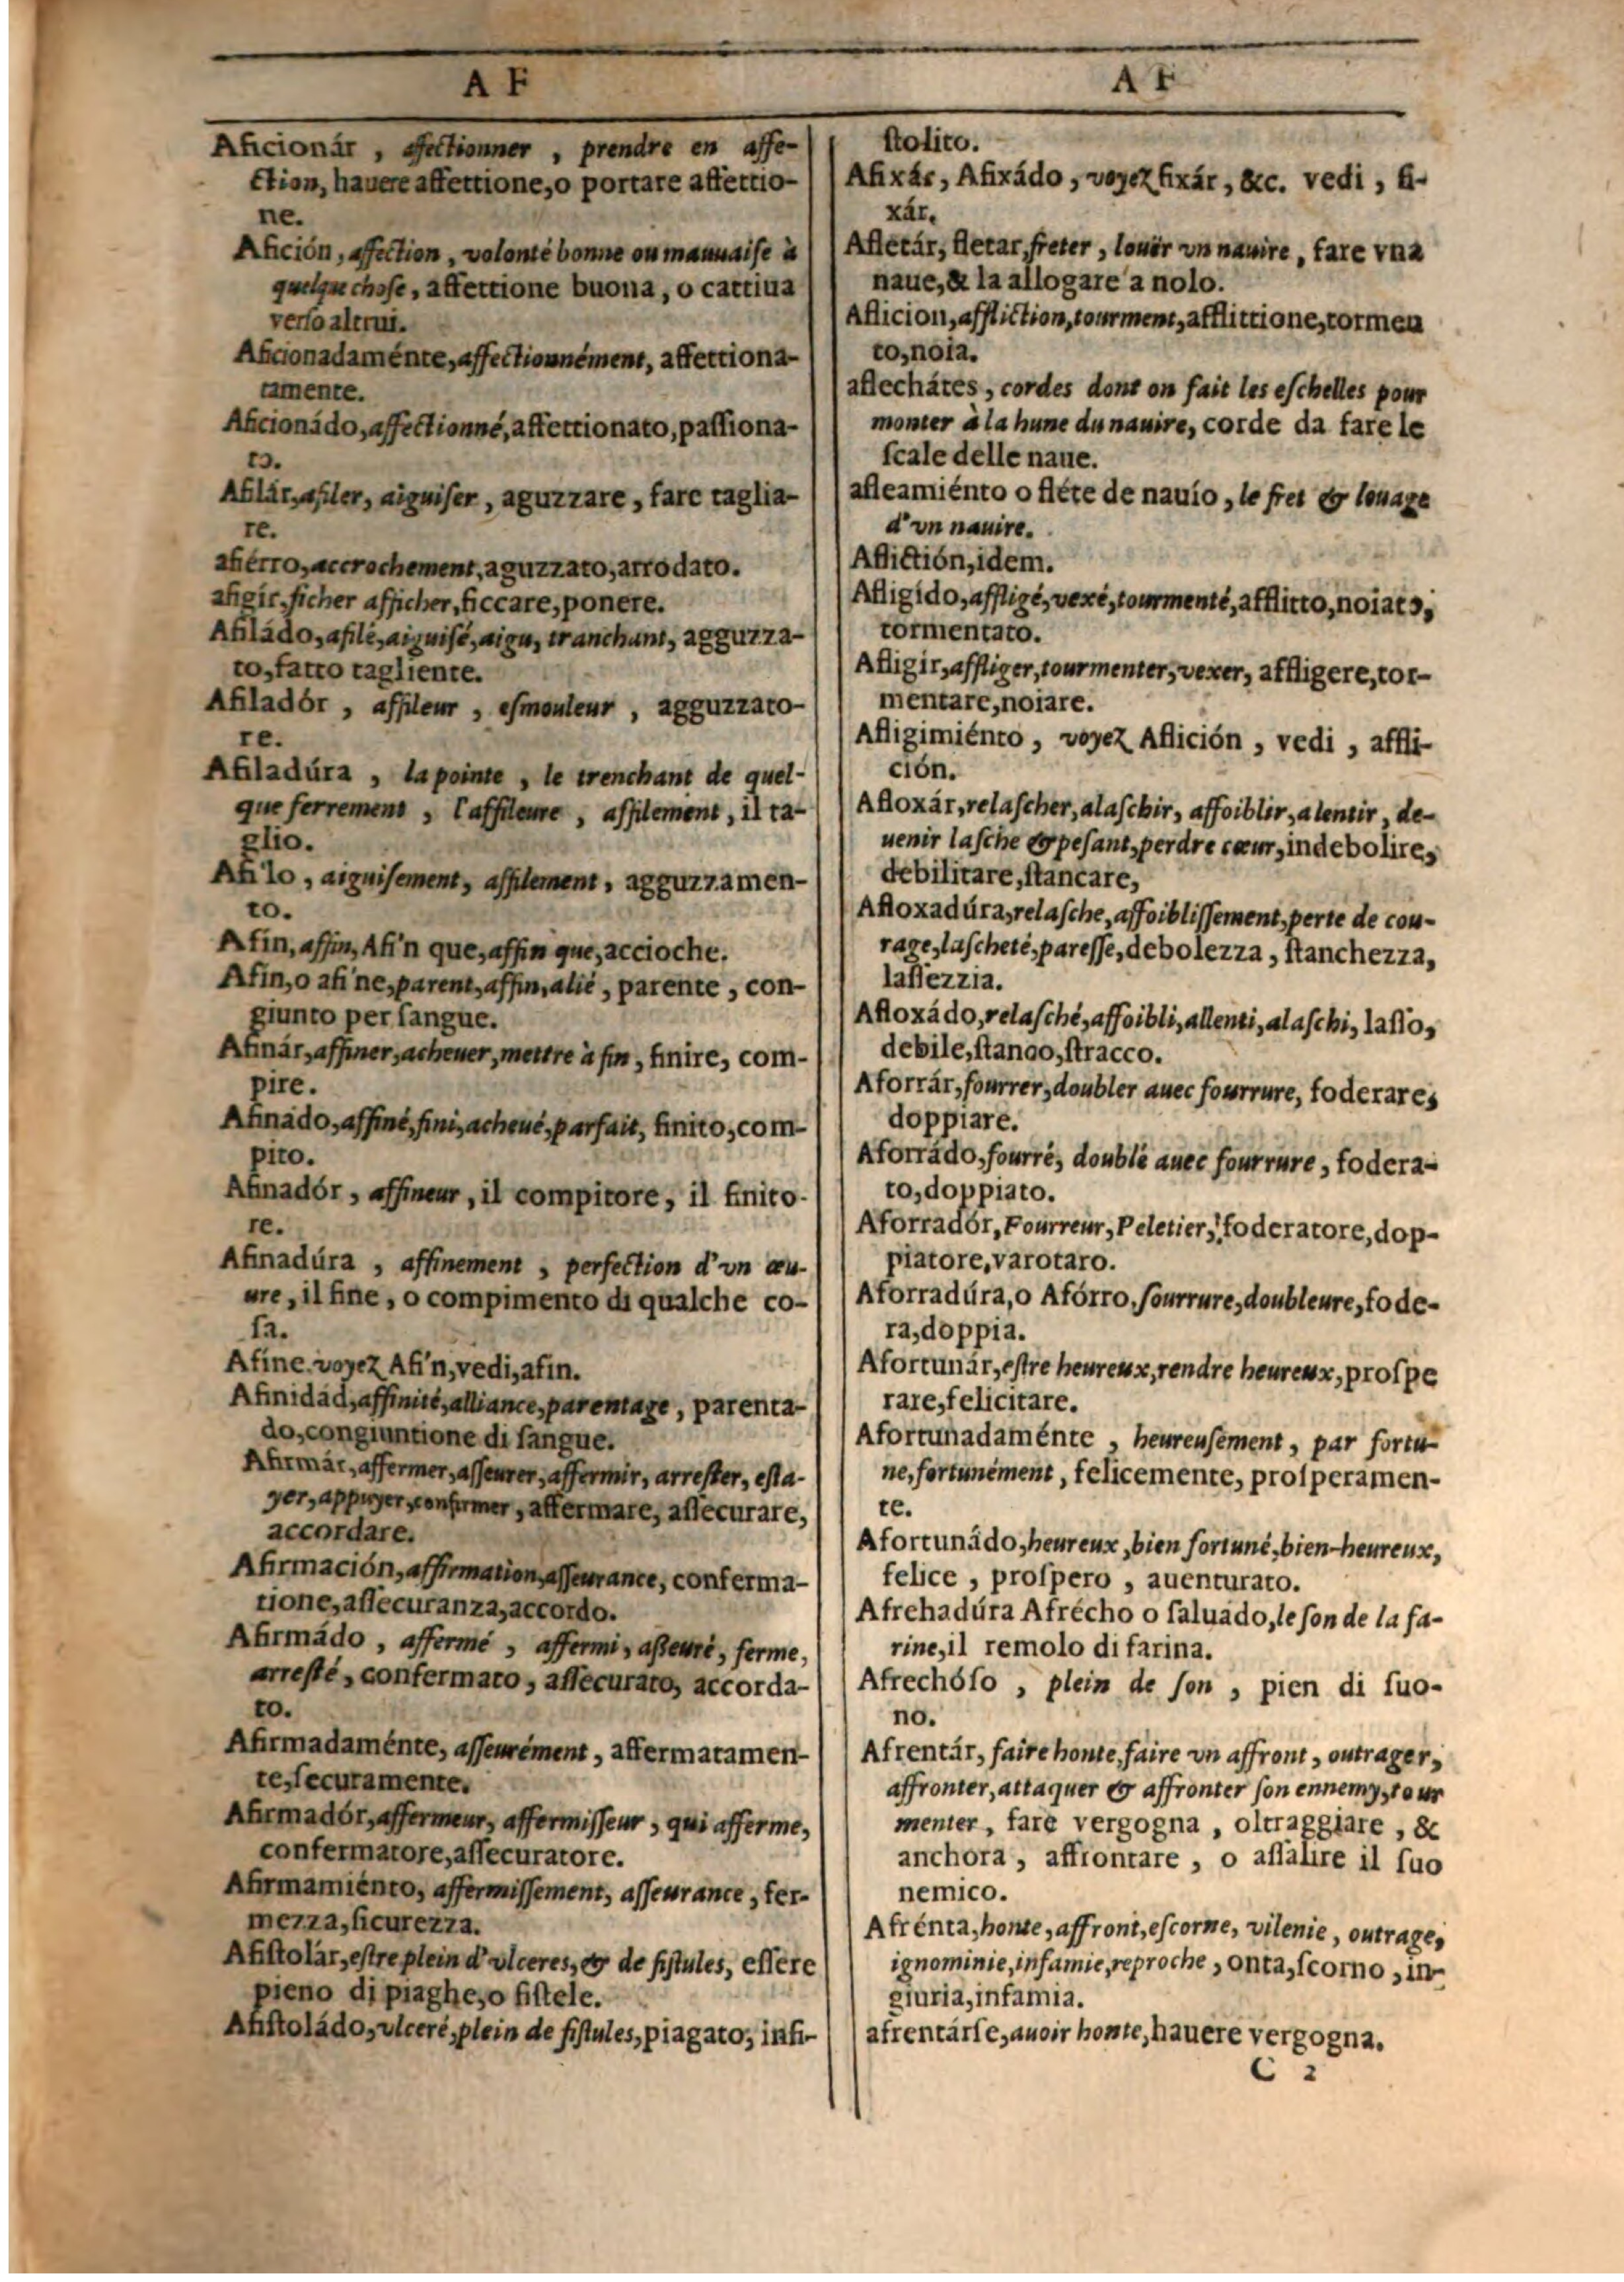 A F
Aficionár , affectionner , prendre en affe-
ction, hauere affettione, o portare affettio-
ne.
Afición, affection , volonté bonne ou mauuaiſe à
quelque choſe, affettione buona, o cattiua
verſo altrui.
Aficionadaménte, affectionnément, affettiona-
tamente.
Aficionádo, affectionné, affettionato, paſſiona-
to.
Afilár, afiler, aiguiſer , aguzzare , fare taglia-
re.
afiérro, accrochement, aguzzato, arrodato.
afigír, ficher afficher, ficcare, ponere.
Afiládo, afilé, aiguiſé, aigu, tranchant, agguzza-
to, fatto tagliente.
Afiladór , affileur , eſmouleur , agguzzato-
re.
Afiladúra , la pointe , le trenchant de quel-
que ferrement , l'affileure , affilement , il ta-
glio.
Afi'lo , aiguiſement, affilement , agguzzamen-
to.
Afin, affin, Afi'n que, affin que, accioche.
Afin, o afi'ne, parent, affin, alié , parente , con-
giunto per ſangue.
Afinár, affiner, acheuer, mettre à fin , finire, com-
pire.
Afinádo, affiné, fini, acheué, parfait, finito, com-
pito.
Afinadór , affineur , il compitore, il finito-
re.
Afinadúra , affinement , perfection d'vn œu-
ure , il fine , o compimento di qualche co-
ſa.
Afine. voyez Afi'n, vedi, afin.
Afinidád, affinité, alliance, parentage , parenta-
do, congiuntione di ſangue.
Afirmár, affermer, aſſeurer, affermir, arreſter, eſta-
yer, appuyer, confirmer , affermare, aſſecurare,
accordare.
Afirmación, affirmation, aſſeurance, conferma-
tione, aſſecuranza, accordo.
Afirmádo , affermé , affermi , aſſeuré, ferme,
arreſté , confermato , aſſecurato, accorda-
to.
Afirmadaménte, aſſeurément , affermatamen-
te, ſecuramente.
Afirmadór, affermeur, affermiſſeur , qui afferme,
confermatore, aſſecuratore.
Afirmamiénto, affermiſſement, aſſeurance , fer-
mezza, ſicurezza.
Afiſtolár, eſtre plein d'vlceres, & de fiſtules, eſſere
pieno di piaghe, o fiſtele.
Afiſtoládo, vlceré, plein de fiſtules, piagato, infi-
A F
ſtolito.
Afixár, Afixádo , voyez fixár, &c. vedi , fi-
xár.
Afletár, fletar, freter , louër vn nauire , fare vna
naue, & la allogare a nolo.
Aflicion, affliction, tourment, afflittione, tormen
to, noia.
aflechátes , cordes dont on fait les eſchelles pour
monter à la hune du nauire, corde da fare le
ſcale delle naue.
afleamiénto o fléte de nauío , le fret & louage
d'vn nauire.
Aflictión, idem.
Afligído, affligé, vexé, tourmenté, afflitto, noiato,
tormentato.
Afligir, affliger, tourmenter, vexer, affligere, tor-
mentare, noiare.
Afligimiénto , voyez Aflición , vedi , affli-
ción.
Afloxár, relaſcher, alaſchir, affoiblir, alentir , de-
uenir laſche & peſant, perdre cœur, indebolire,
debilitare, ſtancare,
Afloxadúra, relaſche, affoibliſſement, perte de cou-
rage, laſcheté, pareſſe, debolezza , ſtanchezza,
laſſezzia.
Afloxádo, relaſché, affoibli, allenti, alaſchi, laſſo,
debile, ſtanco, ſtracco.
Aforrár, fourrer, doubler auec fourrure, foderare,
doppiare.
Aforrádo, fourré, doublé auec fourrure , fodera-
to, doppiato.
Aforradór, Fourreur, Peletier, foderatore, dop-
piatore, varotaro.
Aforradúra, o Afórro, fourrure, doubleure, fode-
ra, doppia.
Afortunár, eſtre heureux, rendre heureux, proſpe
rare, felicitare.
Afortunadaménte , heureuſement , par fortu-
ne, fortunément , felicemente, proſperamen-
te.
Afortunádo, heureux, bien fortuné, bien-heureux,
felice , proſpero , auenturato.
Afrehadúra Afrécho o ſaluado, le ſon de la fa-
rine, il remolo di farina.
Afrechóſo , plein de ſon , pien di ſuo-
no.
Afrentár, faire honte, faire vn affront , outrager,
affronter, attaquer & affronter ſon ennemy, tour
menter , fare vergogna , oltraggiare , &
anchora , affrontare , o aſſalire il ſuo
nemico.
Afrénta, honte, affront, eſcorne, vilenie , outrage,
ignominie, infamie, reproche , onta, ſcorno , in-
giuria, infamia.
afrentárſe, auoir honte, hauere vergogna.
C 2